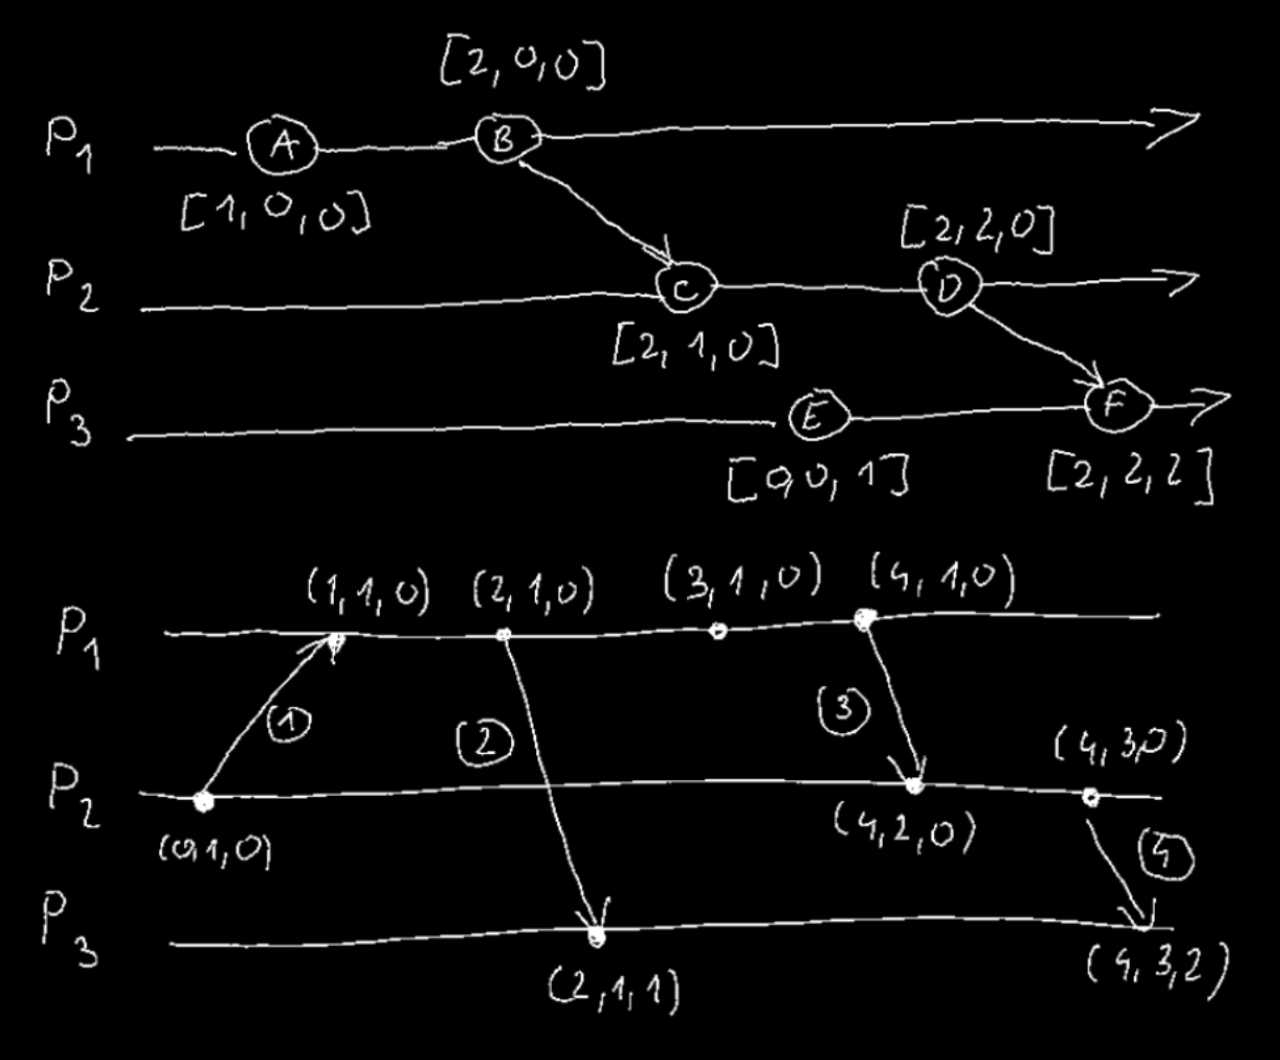 [2, 0, 0]
P1 A B
[1, 0, 0]
[2, 2, 0]
P2 C D
[2, 1, 0]
P3 E F
[0, 0, 1] [2, 2, 2]
(1, 1, 0) (2, 1, 0) (3, 1, 0) (4, 1, 0)
P1
1 2 3
(4, 3, 0)
P2
(0, 1, 0) (4, 2, 0) 4
P3
(2, 1, 1) (4, 3, 2)